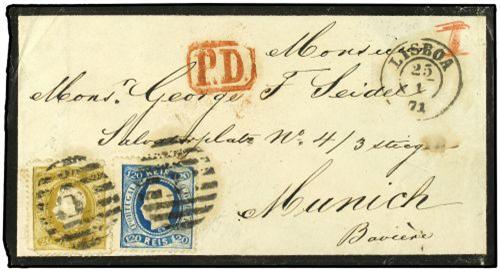 Monsieur
Mons.r George F. Seidel
Salvatorplatz No. 4/3 stieg
Munich
Bavière
P.D.
LISBOA
25
1
71
120 REIS 120
PORTUGAL
120 REIS 120